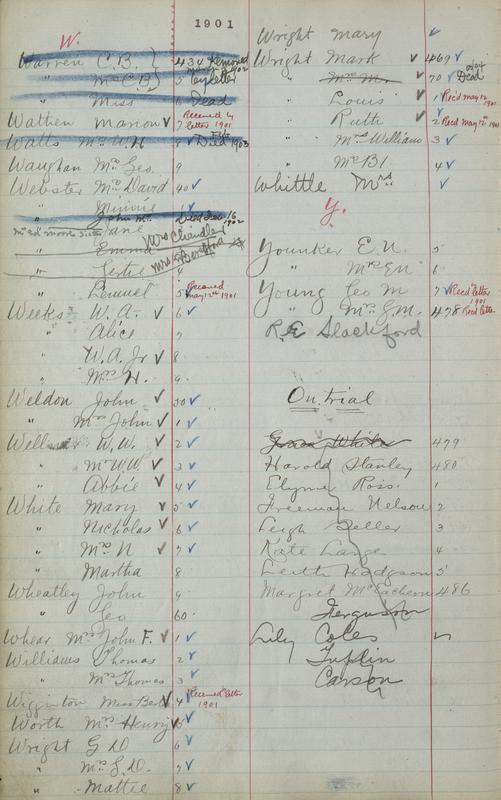 1901
W.
Warren C.B. } 434 Removed
" Mrs C.B. } 5 by letter
" Miss 6 Dead
Wathen Marion √ 7 Received by letter 1901
Watts Mrs W.H. 8 √ Died 1903
Waughan Mrs Geo. 9
Webster Mrs David 40 √
" Minnie 1 √
" John M.
" Jane
" Emma Mrs Chandler
" Lertie
" Lemuel 5 √ Received May 12th 1901
Weeks W. A. √ 6 √
" Alice 7
" W. A. Jr √ 8
" Mrs H. 9
Weldon John √ 50 √
" Mrs John √ 1 √
Wellner W. W. √ 2 √
" Mrs W.W. √ 3 √
" Abbie √ 4 √
White Mary √ 5 √
" Nicholas √ 6 √
" Mrs N √ 7 √
" Martha 8
Wheatley John 9
" Geo 60
Whear Mrs John F. √ 1 √
Williams Thomas 2 √
" Mrs Thomas 3 √
Wigginton Miss Bert √ 4 √ Received letter 1901
Worth Mrs Henry √ 5 √
Wright G D 6 √
" Mrs G. D. 7 √
" Mattie 8 √
Wright Mary √
Wright Mark √ 469 √
" Mrs M. √ 70 √ Dead
" Louis √ 1 √ Rec'd May 12 1901
" Ruth √ 2 Rec'd May 12th 1901
" Mrs William 3 √
" Mrs Bl 4 √
Whittle Mrs √
Y.
Younker E. N. 5
" Mrs E N 6
Young Geo M 7 √ Rec'd letter 1901
" Mrs G.M. 478 Rec'd letter
R.E. Slackford
On trial
Grace White 479
Harold Stanley 480
Elyme Ross. 1
Freeman Nelson 2
Leigh Seller 3
Kate Large 4
Leith Hodgson 5
Margret McEachern 486
Ferguson
Lily Coles
Tuplin
Carson